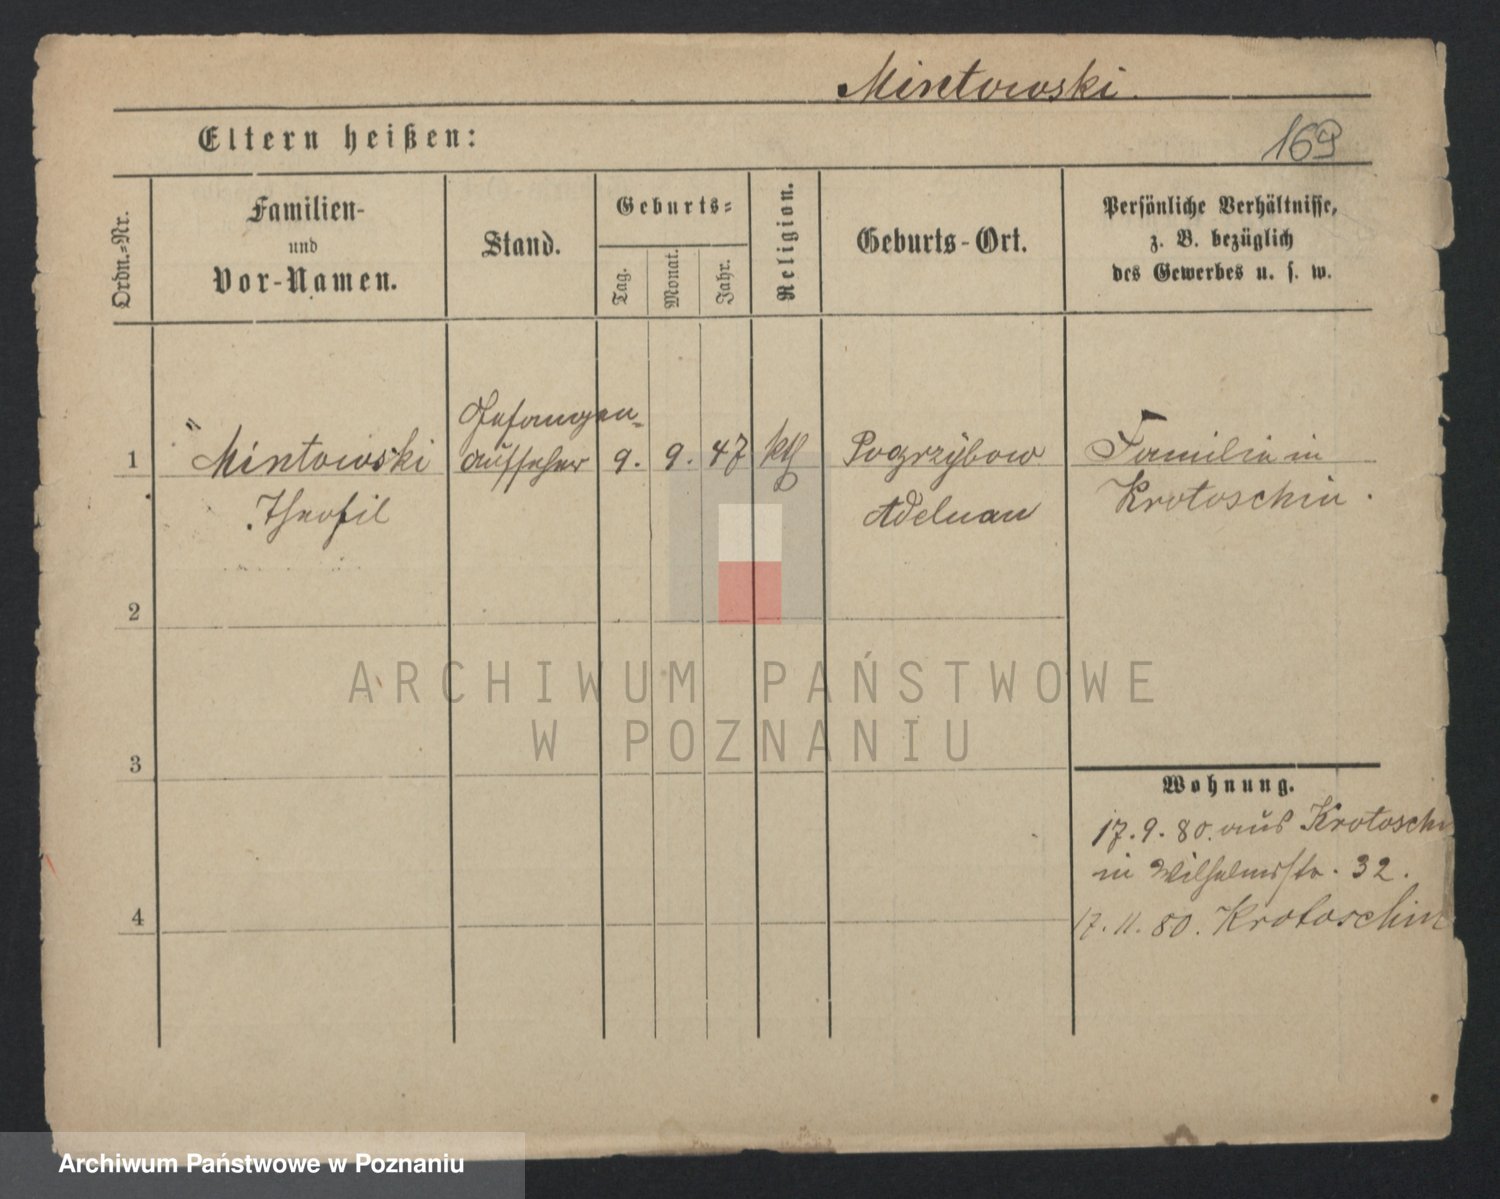 Mintowski.
Eltern heißen:
169
Ordn.-Nr.
Familien-
und
Vor-Namen.
Stand.
Geburts-
Tag.
Monat.
Jahr.
Religion.
Geburts-Ort.
Persönliche Verhältnisse,
z. B. bezüglich
des Gewerbes u. s. w.
Gefangen-
1 Mintowski aufseher 9. 9. 47 kth Pogrzybow Familie in
Theofil Adelnau Krotoschin.
2
ARCHIWUM PAŃSTWOWE
W POZNANIU
3
Wohnung.
17. 9. 80. aus Krotosch
in Wilhelmsstr. 32.
4
17. 11. 80. Krotoschin
Archiwum Państwowe w Poznaniu